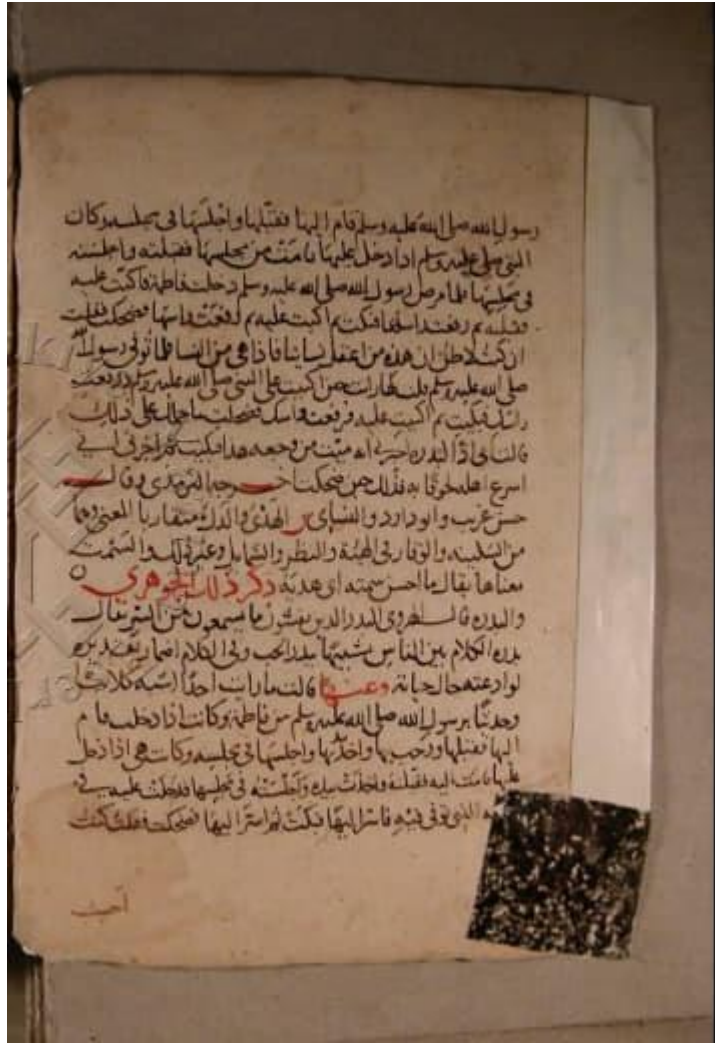 رسول الله صلى الله عليه وسلم قام اليها فقبلها واجلسها في مجلسه وكان
النبي صلى عليه وسلم اذا دخل عليها قامت من مجلسها فقبلته واجلسته
في مجلسها فلما مرض رسول الله صلى الله عليه وسلم دخلت فاطمة فاكبت عليه
فقبلته ثم رفعت راسها فبكت ثم اكبت عليه ثم رفعت راسها فضحكت فقلت
ان كنت لاظن ان هذه من اعقل نسائنا فاذا هي من النسا فلما توفي رسول الله
صلى الله عليه وسلم قلت لها رايت حين اكببت على النبي صلى الله عليه وسلم فرفعت
راسك فبكيت ثم اكببت عليه فرفعت راسك فضحكت ما حملك على ذلك
قالت اني اذا لبذرة اخبرني انه ميت من وجعه هذا فبكيت ثم اخبرني اني
اسرع اهله لحوقا به فذلك حين ضحكت خرجه الترمذي وقال
حسن غريب وابو داود والنساي الهدي والدل متقاربا المعنى وهما
من السكينة والوقار في الهيئة والنظر والشمايل وغير ذلك والسمت
معناها يقال ما احسن سمته اي هديه ذكر ذلك الجوهري
والبذرة قال الهروي البذر الذين يفشون ما يسمعون من السر يقال
بذرة الكلام بين الناس تشبيها ببذر الحب وفي الكلام اضمار تقديره
لو اذعته حال حياته وعنها قالت ما رايت احدا اشبه كلاما
وحديثا برسول الله صلى الله عليه وسلم من فاطمة وكانت اذا دخلت قام
اليها فقبلها ورحب بها واخذ بيدها واجلسها في مجلسه وكانت هي اذا دخل
عليها قامت اليه فقبلته واخذت بيده واجلسته في مجلسها فدخلت عليه في
التي توفي فيه فاسر اليها فبكت ثم اسر اليها فضحكت فقلت كنت
احسب